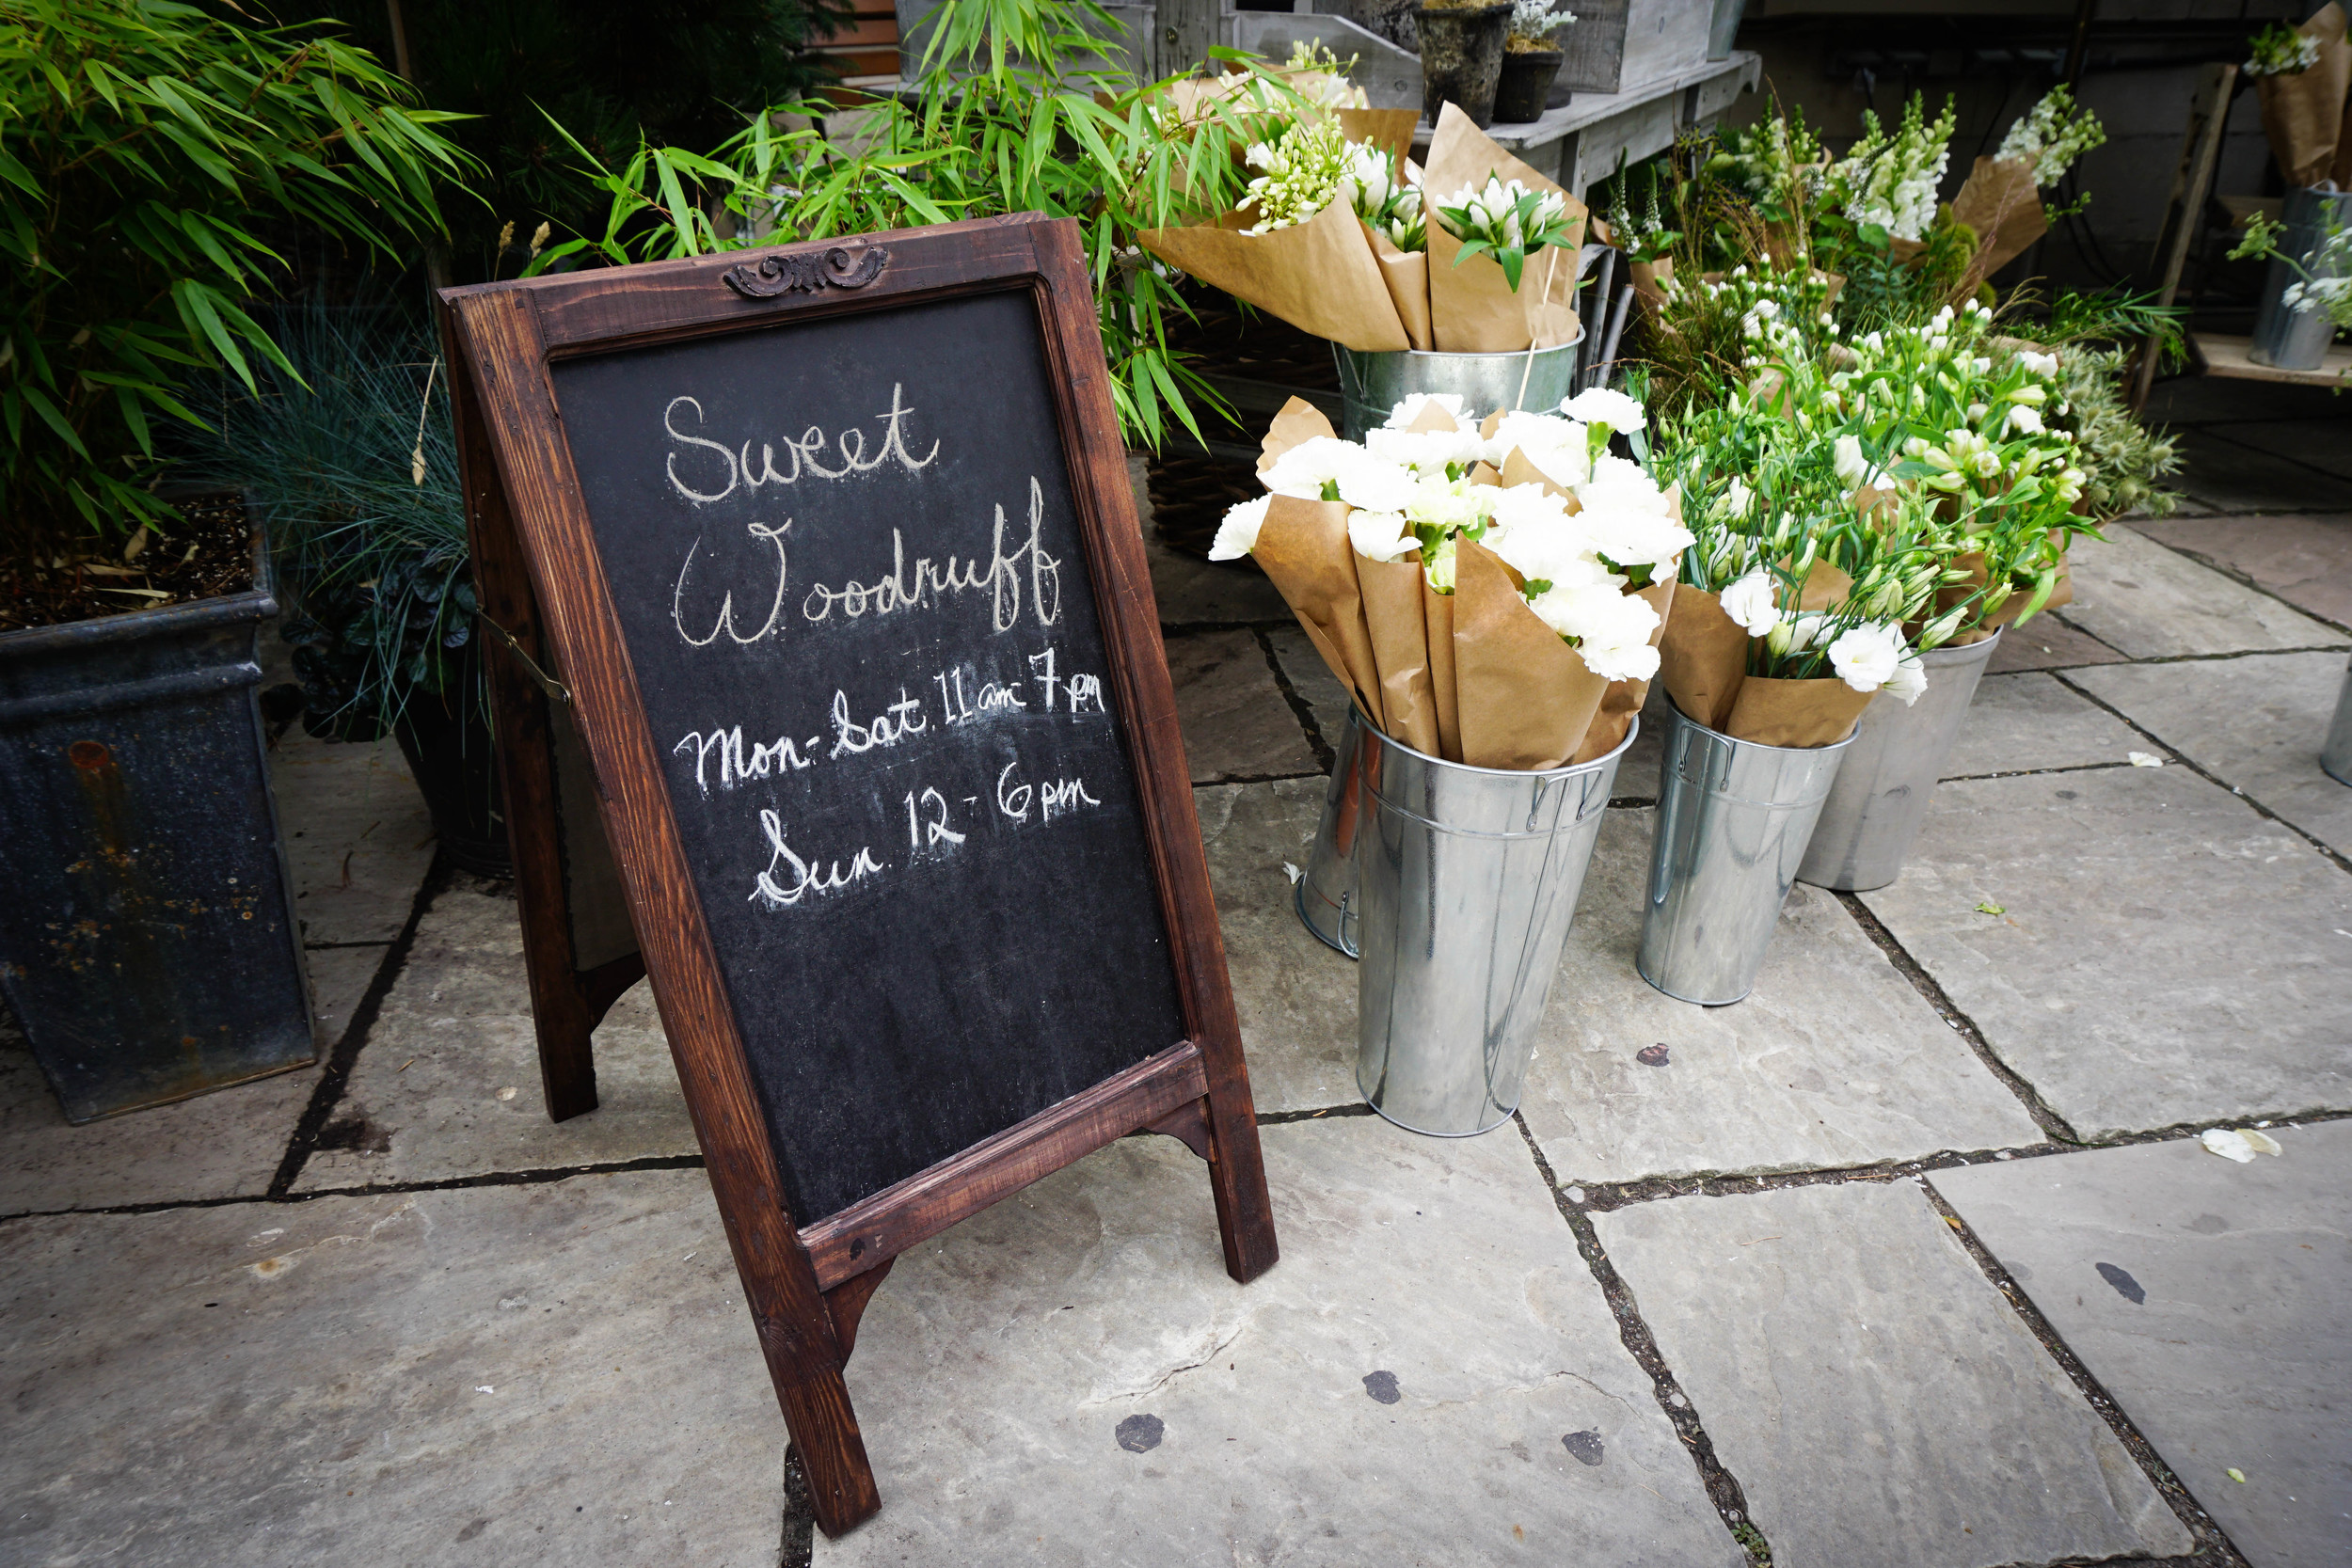 Sweet
Woodruff
Mon-Sat. 11am-7pm
Sun. 12-6pm